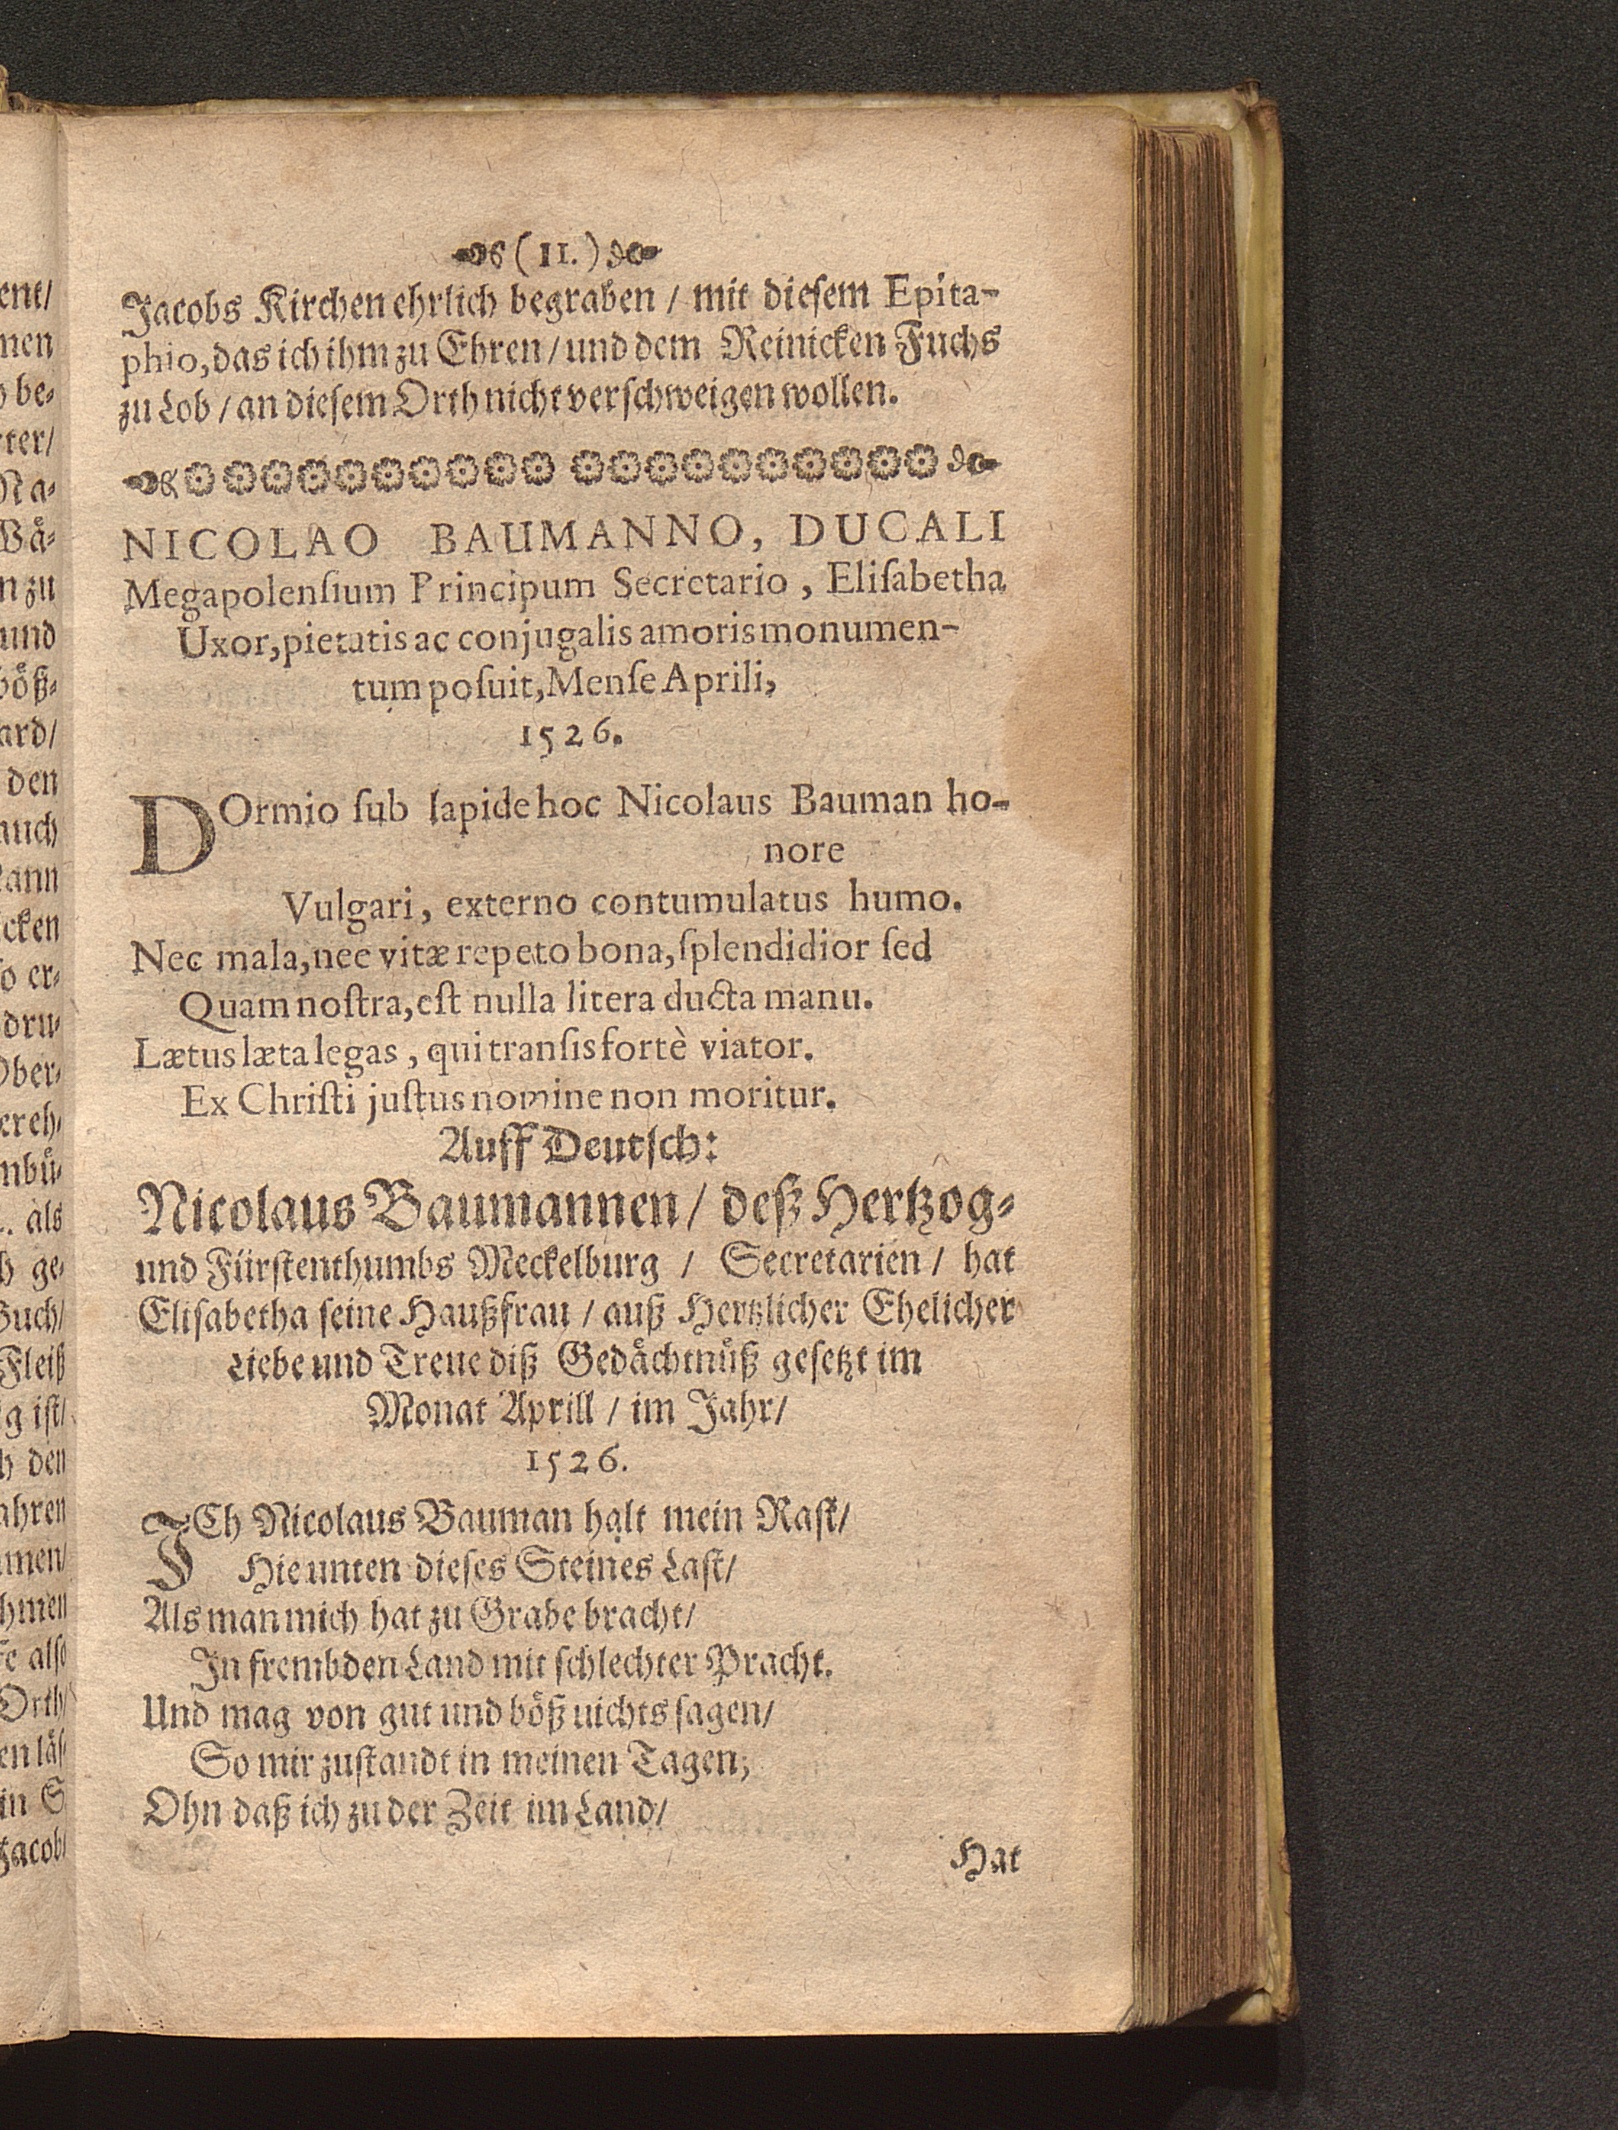 (11.)
Jacobs Kirchen ehrlich begraben / mit diesem Epita-
phio, das ich ihm zu Ehren / und dem Reinicken Fuchs
zu Lob / an diesem Orth nicht verschweigen wollen.
NICOLAO BAUMANNO, DUCALI
Megapolenſium Principum Secretario, Eliſabetha
Uxor, pietatis ac conjugalis amoris monumen-
tum poſuit, Menſe Aprili,
1526.
DOrmio ſub lapide hoc Nicolaus Bauman ho-
nore
Vulgari, externo contumulatus humo.
Nec mala, nec vitæ repeto bona, ſplendidior ſed
Quam noſtra, eſt nulla litera ducta manu.
Lætus læta legas, qui tranſis fortè viator.
Ex Chriſti juſtus nomine non moritur.
Auff Deutſch:
Nicolaus Baumannen / deß Hertzog-
und Fürſtenthumbs Meckelburg / Secretarien / hat
Eliſabetha ſeine Haußfrau / auß Hertzlicher Ehelicher
Liebe und Treue diß Gedåchtnůß geſetzt im
Monat Aprill / im Jahr /
1526.
ICh Nicolaus Bauman halt mein Raſt /
Hie unten dieſes Steines Laſt /
Als man mich hat zu Grabe bracht /
In frembden Land mit ſchlechter Pracht.
Und mag von gut und böß uichts ſagen /
So mir zuſtandt in meinen Tagen;
Ohn daß ich zu der Zeit im Land /
Hat